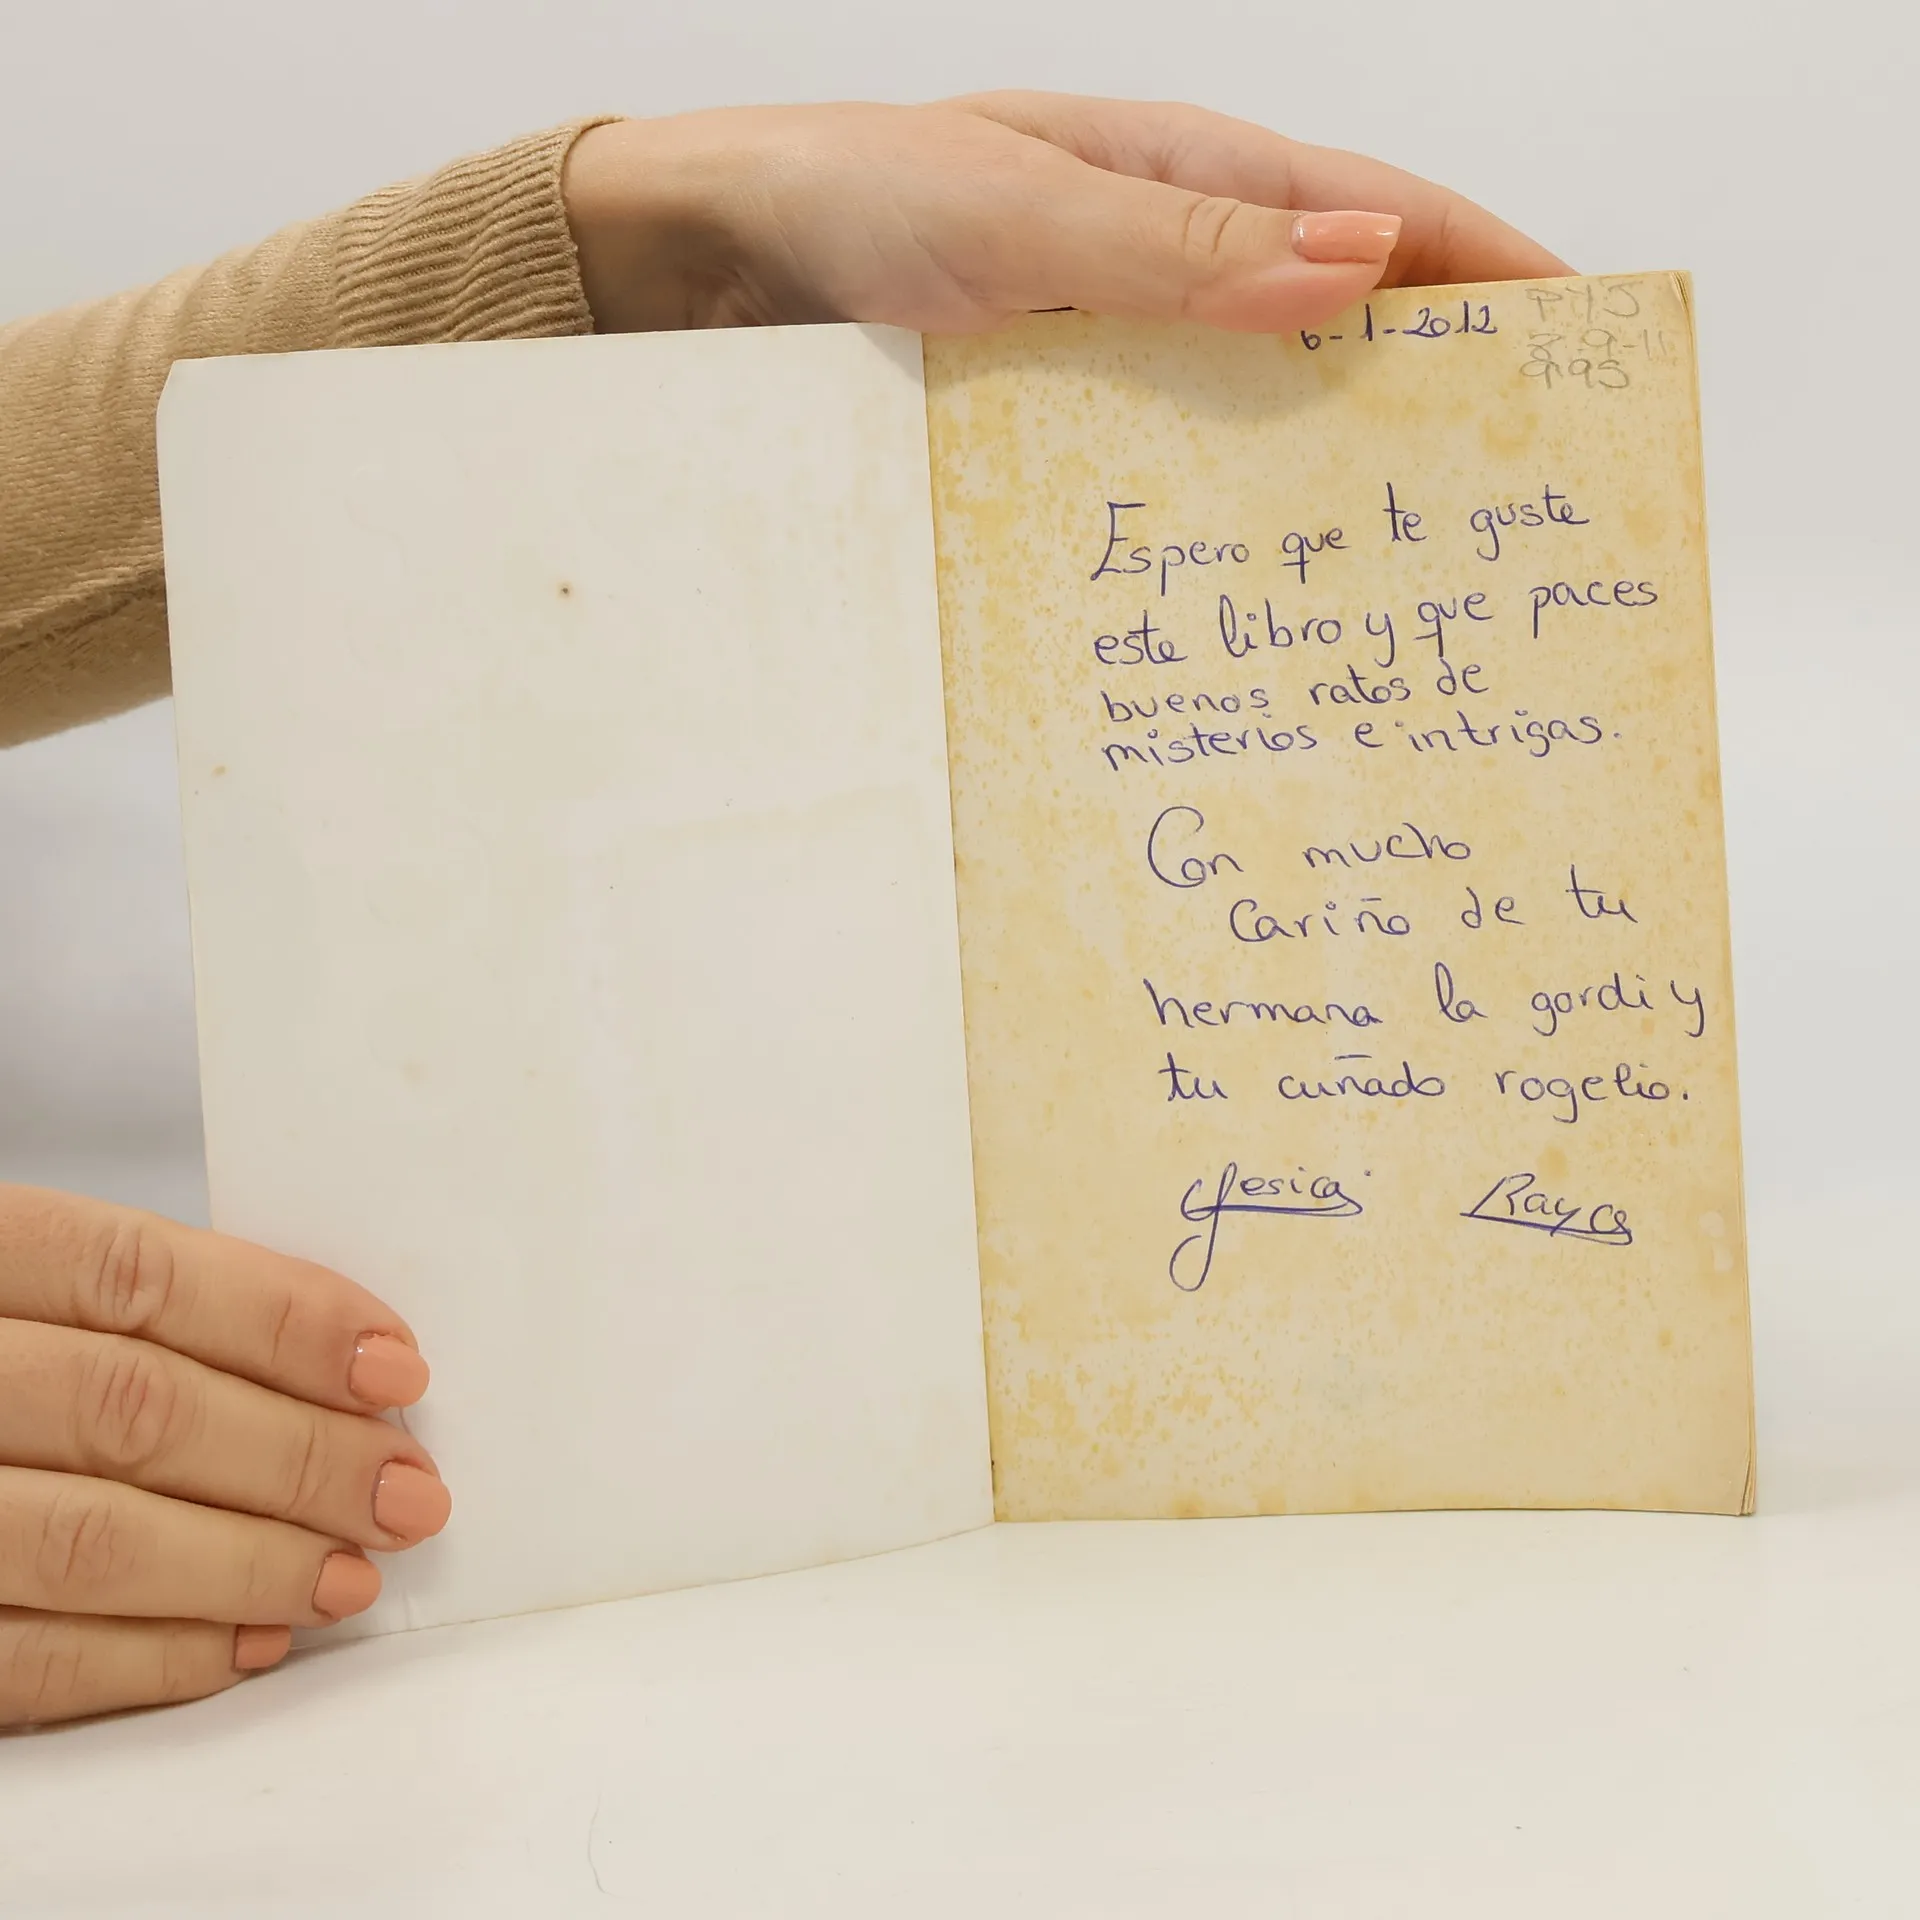 6-1-2012
PYJ
9-11
995
Espero que te guste
este libro y que paces
buenos ratos de
misterios e intrigas.
Con mucho
Cariño de tu
hermana la gordi y
tu cuñado rogelio.
Jesica Rayco